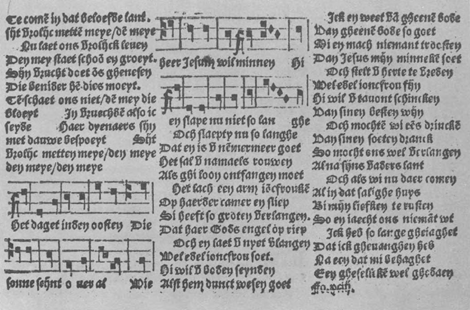 Te comē in dat beloefde lant.
Sijt vrolijc mettē meye/dē meye
Nu laet ons vrolijck leuen
Den mey staet schoō en groeyt.
Sijn vrucht doet ōs ghenesen
Die beniber hē dies moeyt.
Tē schaet ons niet/dē mey die
bloeyt In vruechdē also ic
seyde Haer dyenaers sijn
met dauwe bespoeyt Sijt
vrolijc metten meye/den meye
den meye/den meye
Het daget inden oosten Die
sonne schijnt ouer al Wie
heer Jesum wil minnen Hi
en slape nu niet so lan ghe
Och slaepty nu so langhe
Dat en is v nēmermeer goet
Het sal v namaels rouwen
Als ghi loon ontfangen moet
Het lach een arm iōcfroukē
Op haerder camer en sliep
Si heeft so groten verlangen.
Dat haer Gods engel op riep
Och en laet v nyet vlangen
Wel edel ioncfrou soet.
Hi wil v boden seynden
Alst hem dunct wesen goet
Ick en weet vā gheenē bode
Van gheenē bode so goet
Hi en mach niemant troostē
Dan Jesus mijn minnekē soet
Och stelt v herte te vreden
Wel edel ioncfrou fijn
Hi wil v tauont schincken
Van sinen besten wijn
Och mochte wi eēs drinckē
Van sinen soeten dranck
So mocht ons wel verlangen
Al na sijns vaders lant
Och als wi nu daer comen
Al in dat salighe huys
Bi mijn liefken te rusten
So en iaecht ons niemāt wt
Ick heb so lange gheiaghet
Dat ick gheuanghen heb
Na een dat mi behaghet
Een gheselleke wel ghedaen
Fo. xciii.